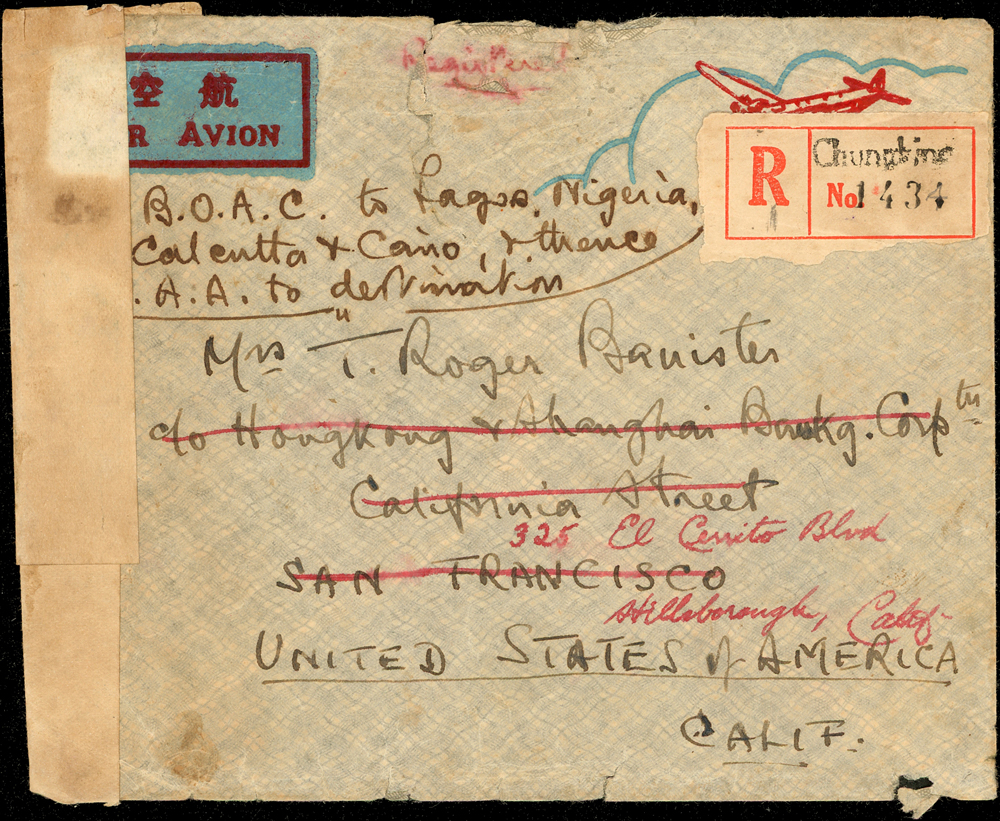 空 航
R AVION
Registered
R
Chungking
No. 1434
B.O.A.C. to Lagos, Nigeria,
Calcutta & Cairo, & thence
.A.A. to destination
Mrs T. Roger Banister
c/o Hongkong & Shanghai Bankg. Corptn
California Street
325 El Cerrito Blvd
SAN FRANCISCO
Hillsborough, Calif.
UNITED STATES of AMERICA
CALIF.